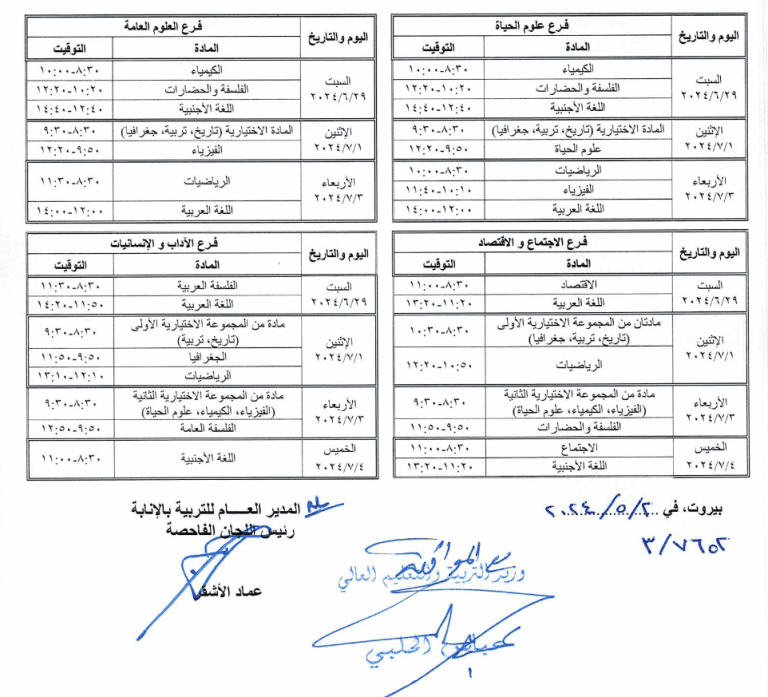 اليوم والتاريخ فرع علوم الحياة
المادة التوقيت
السبت ٢٠٢٤/٦/٢٩ الكيمياء ٨:٣٠-١٠:٠٠
الفلسفة والحضارات ١٠:٢٠-١٢:٢٠
اللغة الأجنبية ١٢:٤٠-١٤:٤٠
الإثنين ٢٠٢٤/٧/١ المادة الاختيارية (تاريخ، تربية، جغرافيا) ٨:٣٠-٩:٣٠
علوم الحياة ٩:٥٠-١٢:٢٠
الأربعاء ٢٠٢٤/٧/٣ الرياضيات ٨:٣٠-١٠:٠٠
الفيزياء ١٠:١٠-١١:٤٠
اللغة العربية ١٢:٠٠-١٤:٠٠
اليوم والتاريخ فرع العلوم العامة
المادة التوقيت
السبت ٢٠٢٤/٦/٢٩ الكيمياء ٨:٣٠-١٠:٠٠
الفلسفة والحضارات ١٠:٢٠-١٢:٢٠
اللغة الأجنبية ١٢:٤٠-١٤:٤٠
الإثنين ٢٠٢٤/٧/١ المادة الاختيارية (تاريخ، تربية، جغرافيا) ٨:٣٠-٩:٣٠
الفيزياء ٩:٥٠-١٢:٢٠
الأربعاء ٢٠٢٤/٧/٣ الرياضيات ٨:٣٠-١١:٣٠
اللغة العربية ١٢:٠٠-١٤:٠٠
اليوم والتاريخ فرع الاجتماع و الاقتصاد
المادة التوقيت
السبت ٢٠٢٤/٦/٢٩ الاقتصاد ٨:٣٠-١١:٠٠
اللغة العربية ١١:٢٠-١٣:٢٠
الإثنين ٢٠٢٤/٧/١ مادتان من المجموعة الاختيارية الأولى ٨:٣٠-١٠:٣٠
(تاريخ، تربية، جغرافيا)
الرياضيات ١٠:٥٠-١٢:٢٠
الأربعاء ٢٠٢٤/٧/٣ مادة من المجموعة الاختيارية الثانية ٨:٣٠-٩:٣٠
(الفيزياء، الكيمياء، علوم الحياة)
الفلسفة والحضارات ٩:٥٠-١١:٥٠
الخميس ٢٠٢٤/٧/٤ الاجتماع ٨:٣٠-١١:٠٠
اللغة الأجنبية ١١:٢٠-١٣:٢٠
اليوم والتاريخ فرع الآداب و الإنسانيات
المادة التوقيت
السبت ٢٠٢٤/٦/٢٩ الفلسفة العربية ٨:٣٠-١١:٣٠
اللغة العربية ١١:٥٠-١٤:٢٠
الإثنين ٢٠٢٤/٧/١ مادة من المجموعة الاختيارية الأولى ٨:٣٠-٩:٣٠
(تاريخ، تربية)
الجغرافيا ٩:٥٠-١١:٥٠
الرياضيات ١٢:١٠-١٣:١٠
الأربعاء ٢٠٢٤/٧/٣ مادة من المجموعة الاختيارية الثانية ٨:٣٠-٩:٣٠
(الفيزياء، الكيمياء، علوم الحياة)
الفلسفة العامة ٩:٥٠-١٢:٥٠
الخميس ٢٠٢٤/٧/٤ اللغة الأجنبية ٨:٣٠-١١:٠٠
بيروت، في ٢٠٢٤/٥/٢
٣/٧٦٥٢
المدير العـــام للتربية بالإنابة
رئيس اللجان الفاحصة
عماد الأشقر
مع الموافقة
وزير التربية والتعليم العالي
عباس الحلبي